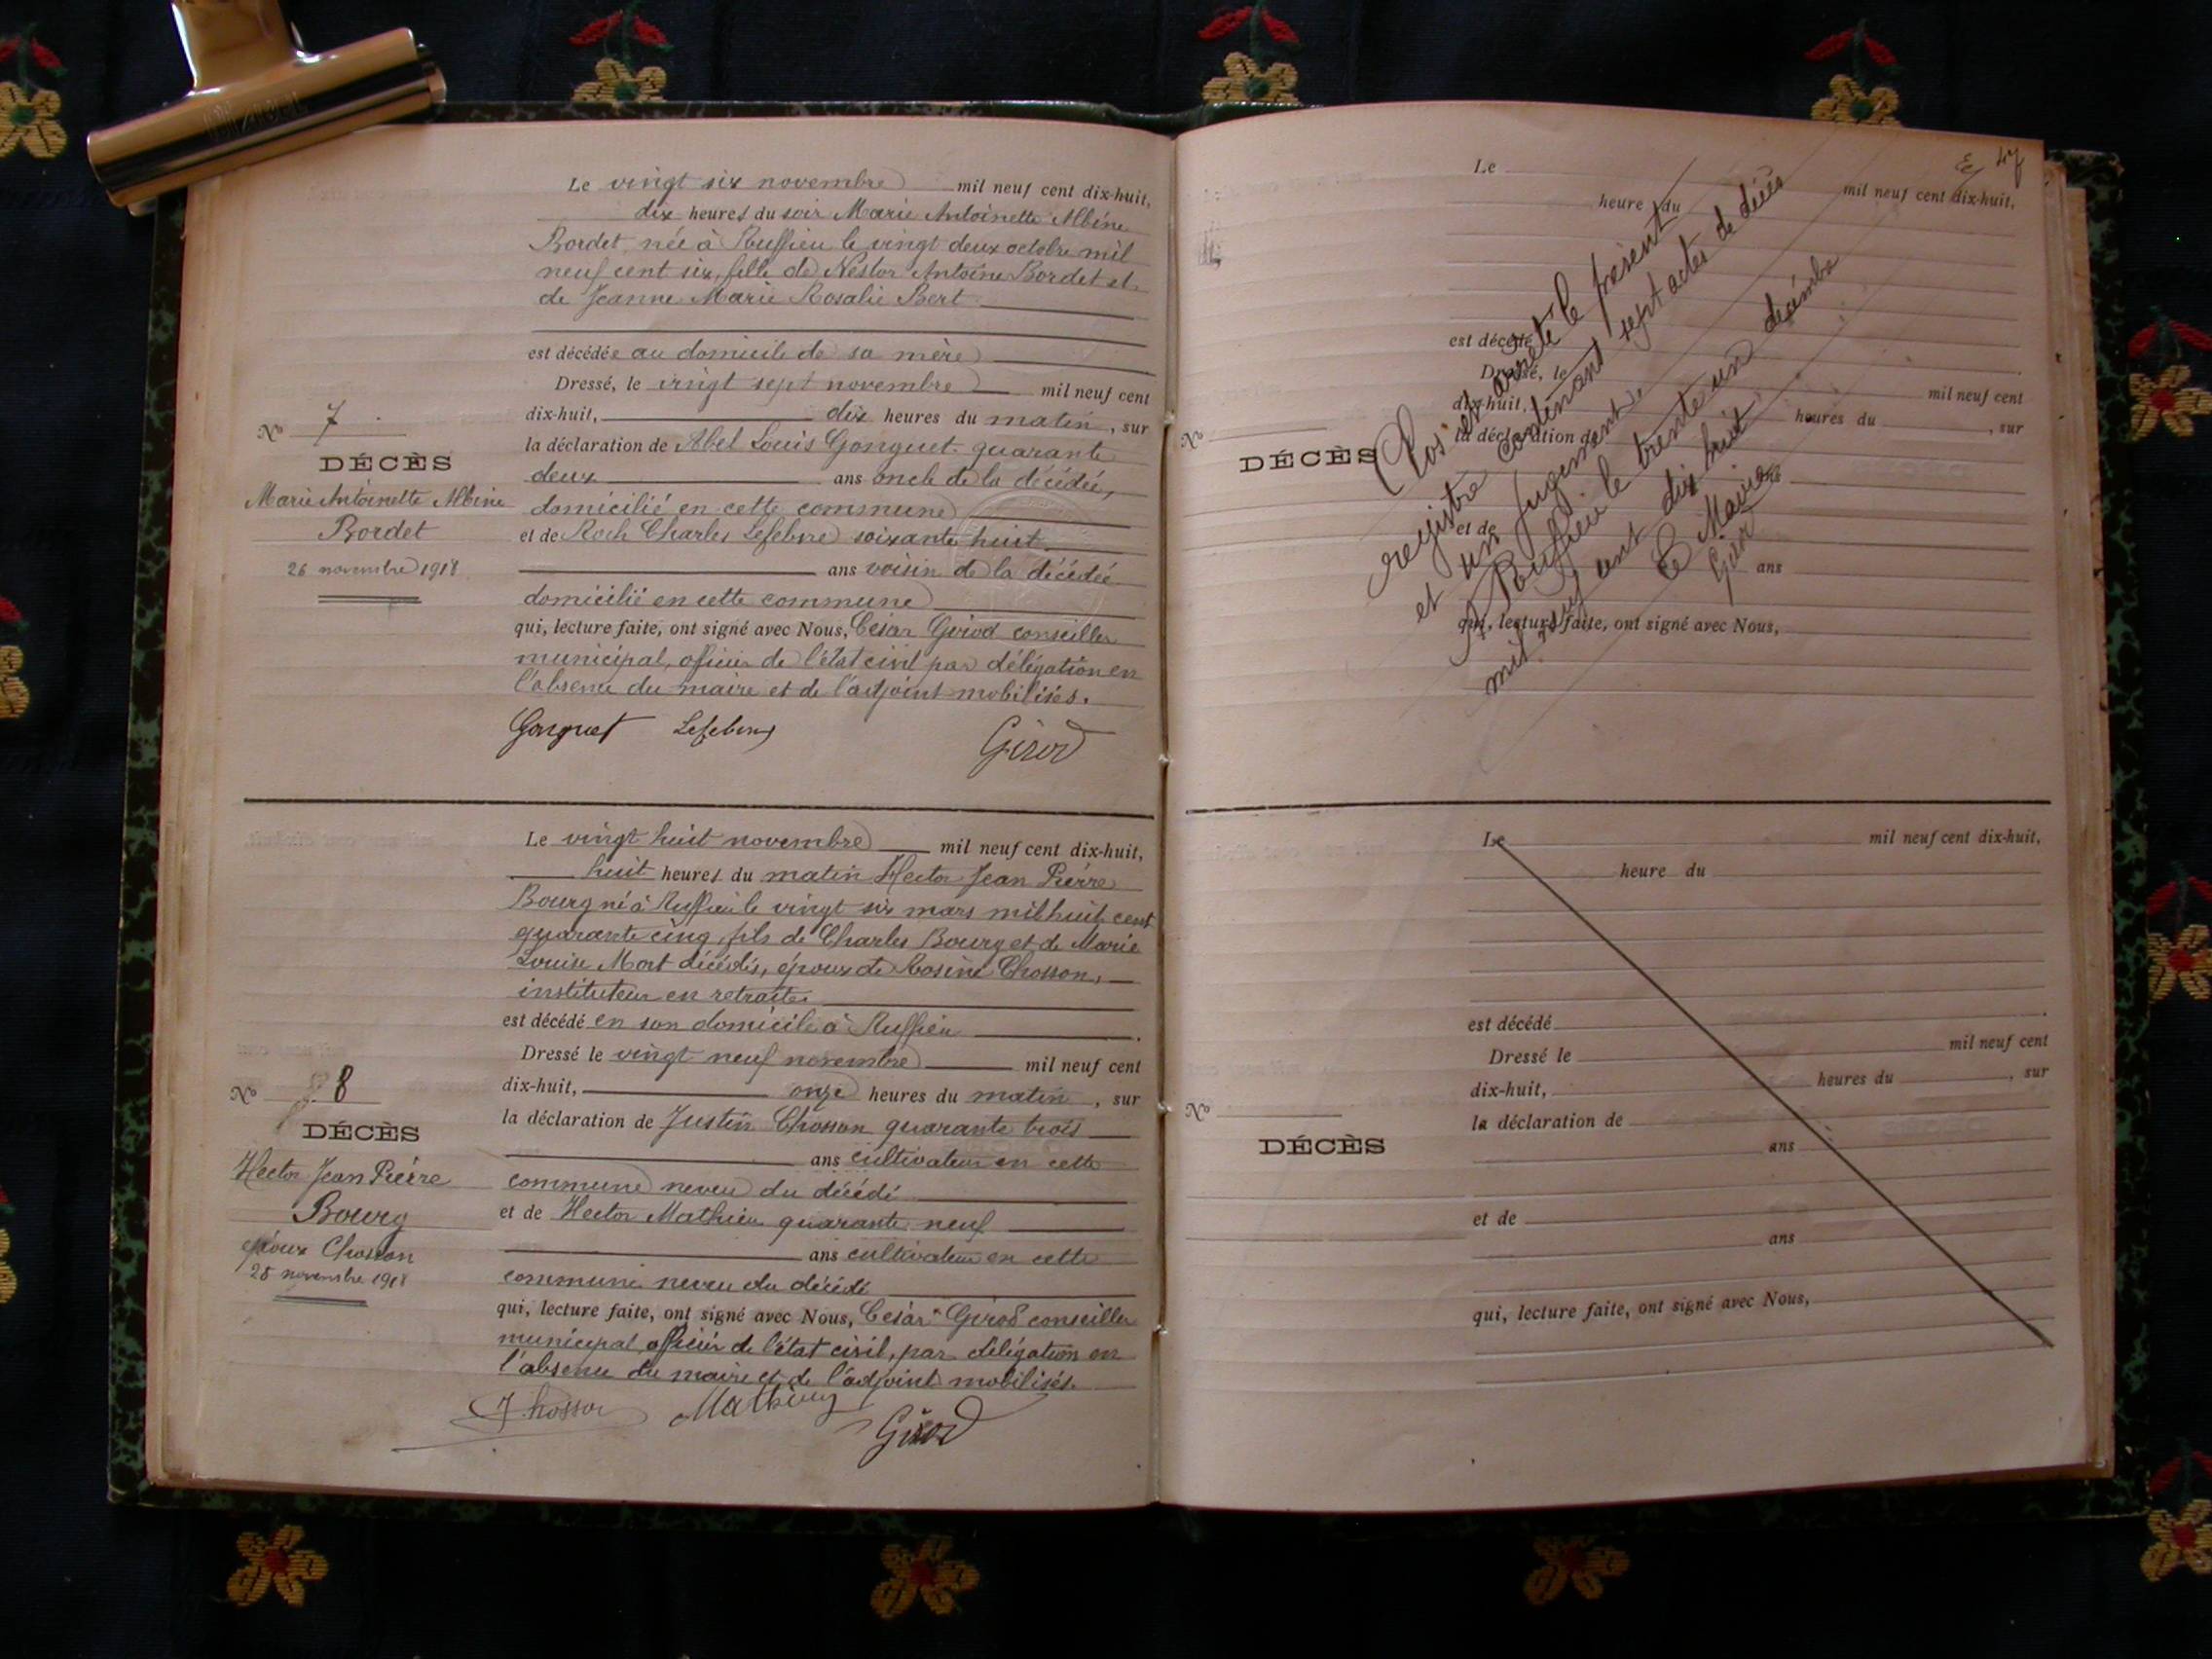 Le vingt six novembre mil neuf cent dix-huit,
dix heures du soir Marie Antoinette Albine
Bordet née à Ruffieu le vingt deux octobre mil
neuf cent six, fille de Nestor Antoine Bordet et
de Jeanne Marie Rosalie Bert
est décédée au domicile de sa mère
Dressé, le vingt sept novembre mil neuf cent
dix-huit, dix heures du matin, sur
la déclaration de Abel Louis Gonguet quarante
deux ans oncle de la décédée,
domicilié en cette commune
et de Roch Charles Lefebvre soixante huit
ans voisin de la décédée
domicilié en cette commune
qui, lecture faite, ont signé avec Nous, César Girod conseiller
municipal, officier de l'état civil par délégation en
l'absence du maire et de l'adjoint mobilisés.
Gonguet Lefebvre Girod
No 7
DÉCÈS
Marie Antoinette Albine
Bordet
26 novembre 1918
Le vingt huit novembre mil neuf cent dix-huit,
huit heures du matin Hector Jean Pierre
Bourg né à Ruffieu le vingt six mars mil huit cent
quarante cinq, fils de Charles Bourg et de Marie
Louise Mort décédés, époux de Rosine Chosson,
instituteur en retraite
est décédé en son domicile à Ruffieu
Dressé le vingt neuf novembre mil neuf cent
dix-huit, onze heures du matin, sur
la déclaration de Justin Chosson quarante trois
ans cultivateur en cette
commune neveu du décédé
et de Hector Mathieu quarante neuf
ans cultivateur en cette
commune neveu du décédé
qui, lecture faite, ont signé avec Nous, César Girod conseiller
municipal, officier de l'état civil, par délégation en
l'absence du maire et de l'adjoint mobilisés.
J Chosson Mathieu Girod
No 8
DÉCÈS
Hector Jean Pierre
Bourg
époux Chosson
28 novembre 1918
47
Le mil neuf cent dix-huit,
heure du
est décédé
Dressé, le mil neuf cent
dix-huit, heures du , sur
la déclaration de
ans
et de
ans
qui, lecture faite, ont signé avec Nous,
No
DÉCÈS
Clos et arrêté le présent
registre contenant sept actes de décès
et un jugement
A Ruffieu le trente un décembre
mil neuf cent dix huit
Le Maire
Le mil neuf cent dix-huit,
heure du
est décédé
Dressé le mil neuf cent
dix-huit, heures du , sur
la déclaration de
ans
et de
ans
qui, lecture faite, ont signé avec Nous,
No
DÉCÈS